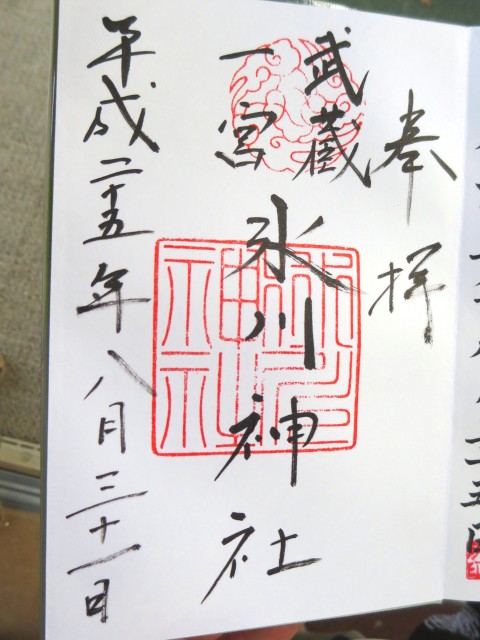 奉拝
武蔵
一宮
氷川神社
平成二十五年八月三十一日